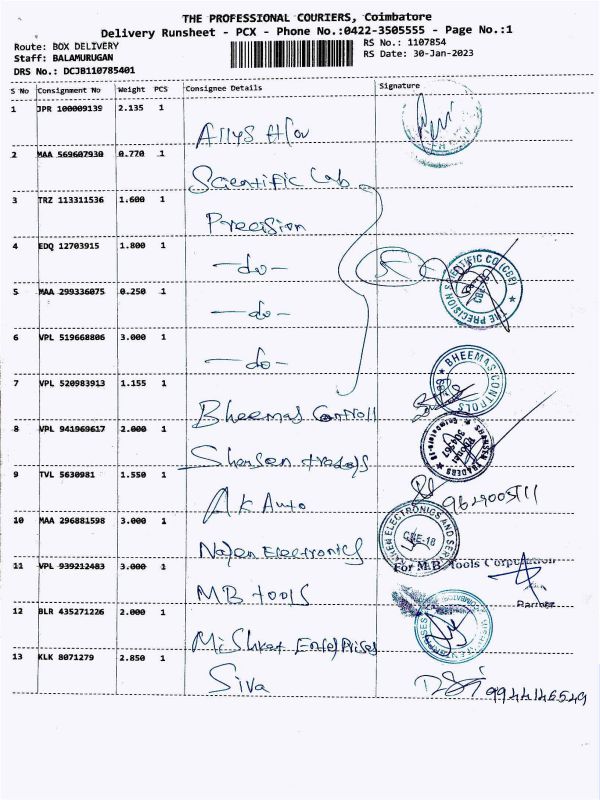 THE PROFESSIONAL COURIERS, Coimbatore
Delivery Runsheet - PCX - Phone No.:0422-3505555 - Page No.:1
Route: BOX DELIVERY
RS No.: 1107854
Staff: BALAMURUGAN
RS Date: 30-Jan-2023
DRS No.: DCJB110785401
S No Consignment No Weight PCS Consignee Details Signature
1 JPR 100009139 2.135 1
2 MAA 569607930 0.770 1
Scientific Lab
3 TRZ 113311536 1.600 1
Precision
4 EDQ 12703915 1.800 1
-do-
THE PRECISION SCIENTIFIC CO (CBE)
5 MAA 299336075 0.250 1
-do-
6 VPL 519668806 3.000 1
-do-
7 VPL 520983913 1.155 1
Bheemas Controll
BHEEMAS CONTROLS
8 VPL 941969617 2.000 1
traders
TRADERS
9 TVL 5630981 1.550 1
AK Auto
10 MAA 296881598 3.000 1
Electronics
ELECTRONICS AND
CBE-18
11 VPL 939212483 3.000 1
MB tools
For M.B. Tools Corporation
Partner
12 BLR 435271226 2.000 1
13 KLK 8071279 2.850 1
Siva
9944146549